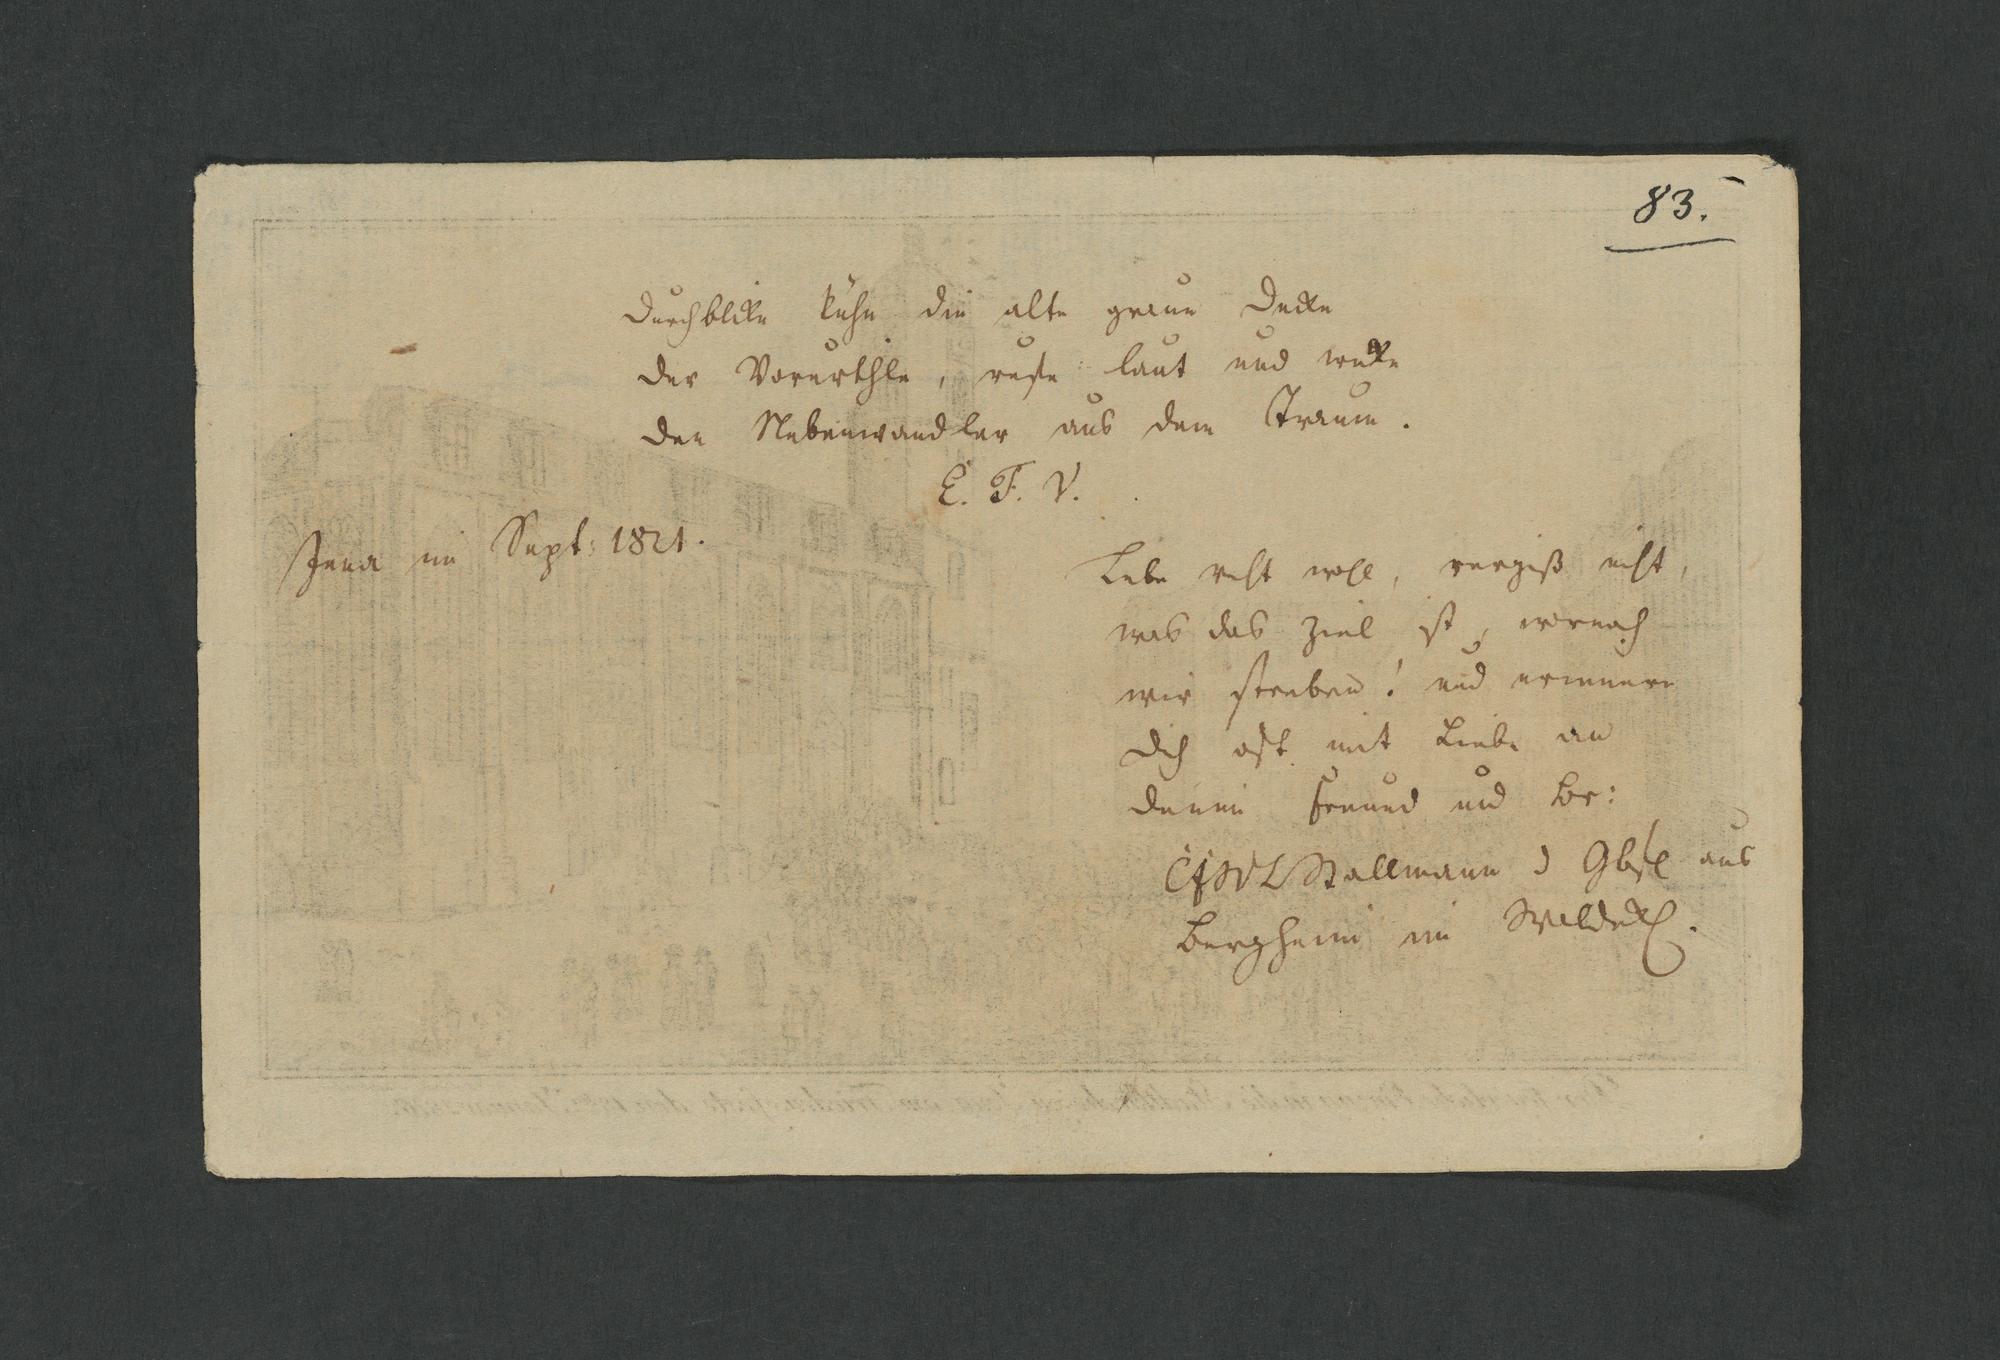 83.
Durchblicke kühn die alte graue Decke
der Vorurthle, rufe laut und wecke
den Nebenwandler aus dem Traum.
E. F. V.
Jena im Sept: 1821.
Lebe recht wohl, vergiß nicht,
was das Ziel ist, wornach
wir streben! und erinnere
dich oft mit Liebe an
deinen Freund und Br:
Stallmann d aus
Bergheim im Waldeck.